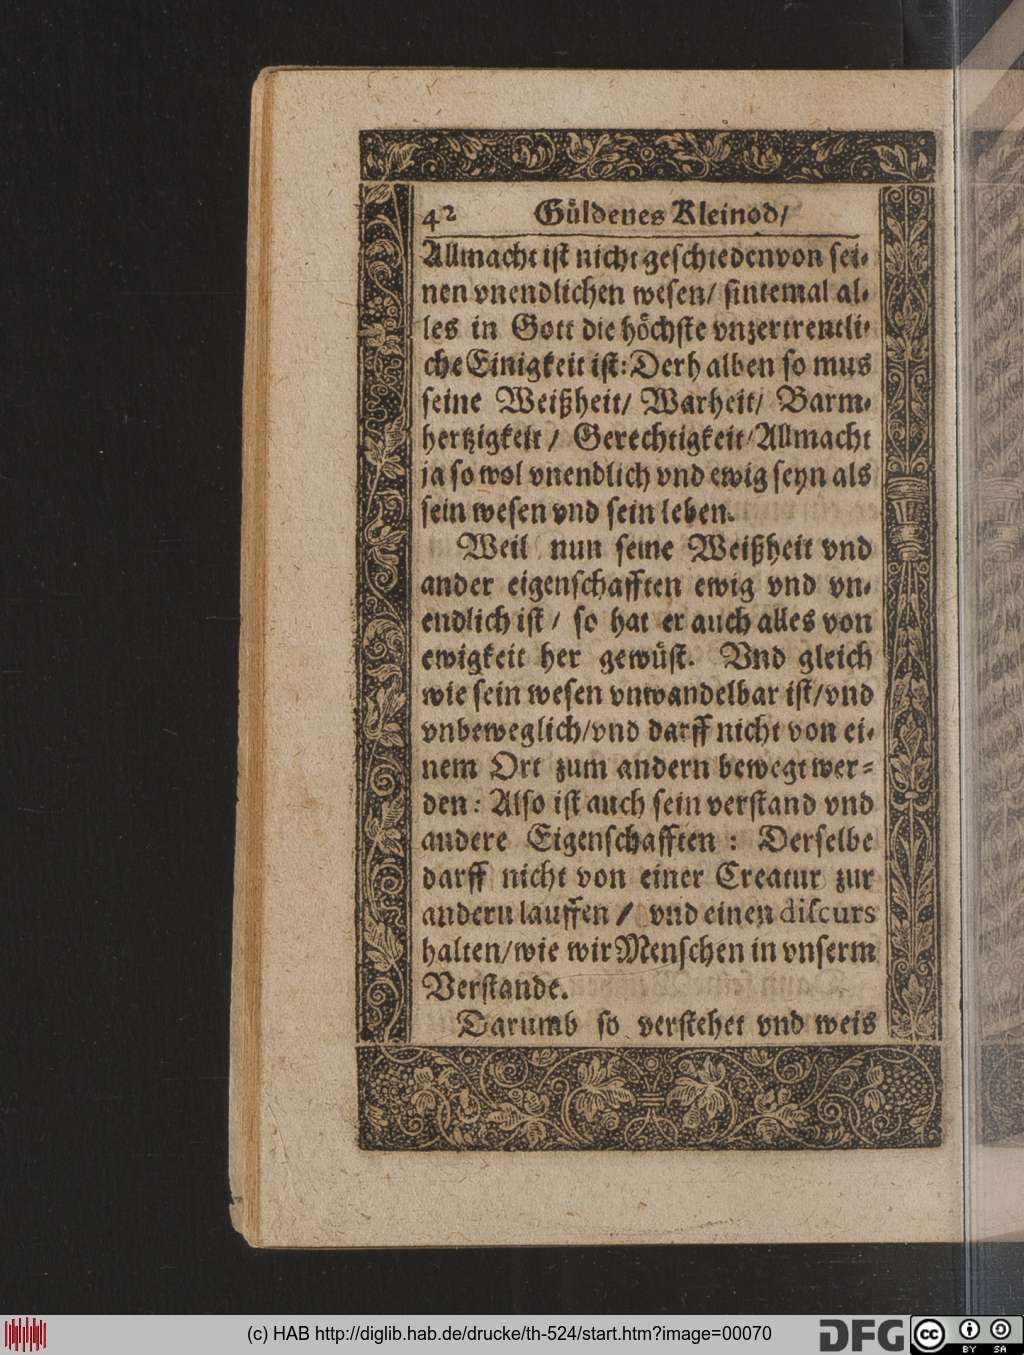 42 Güldenes Kleinod/
Allmacht ist nicht geschieden von sei-
nen vnendlichen wesen/ sintemal al-
les in Gott die höchste vnzertrentli-
che Einigkeit ist: Derhalben so mus
seine Weißheit/ Warheit/ Barm-
hertzigkeit/ Gerechtigkeit/ Allmacht
ja so wol vnendlich vnd ewig seyn als
sein wesen vnd sein leben.
Weil nun seine Weißheit vnd
ander eigenschafften ewig vnd vn-
endlich ist/ so hat er auch alles von
ewigkeit her gewüst. Vnd gleich
wie sein wesen vnwandelbar ist/ vnd
vnbeweglich/ vnd darff nicht von ei-
nem Ort zum andern bewegt wer-
den: Also ist auch sein verstand vnd
andere Eigenschafften: Derselbe
darff nicht von einer Creatur zur
andern lauffen/ vnd einen discurs
halten/ wie wir Menschen in vnserm
Verstande.
Darumb so verstehet vnd weis
(c) HAB http://diglib.hab.de/drucke/th-524/start.htm?image=00070
DFG
cc BY SA